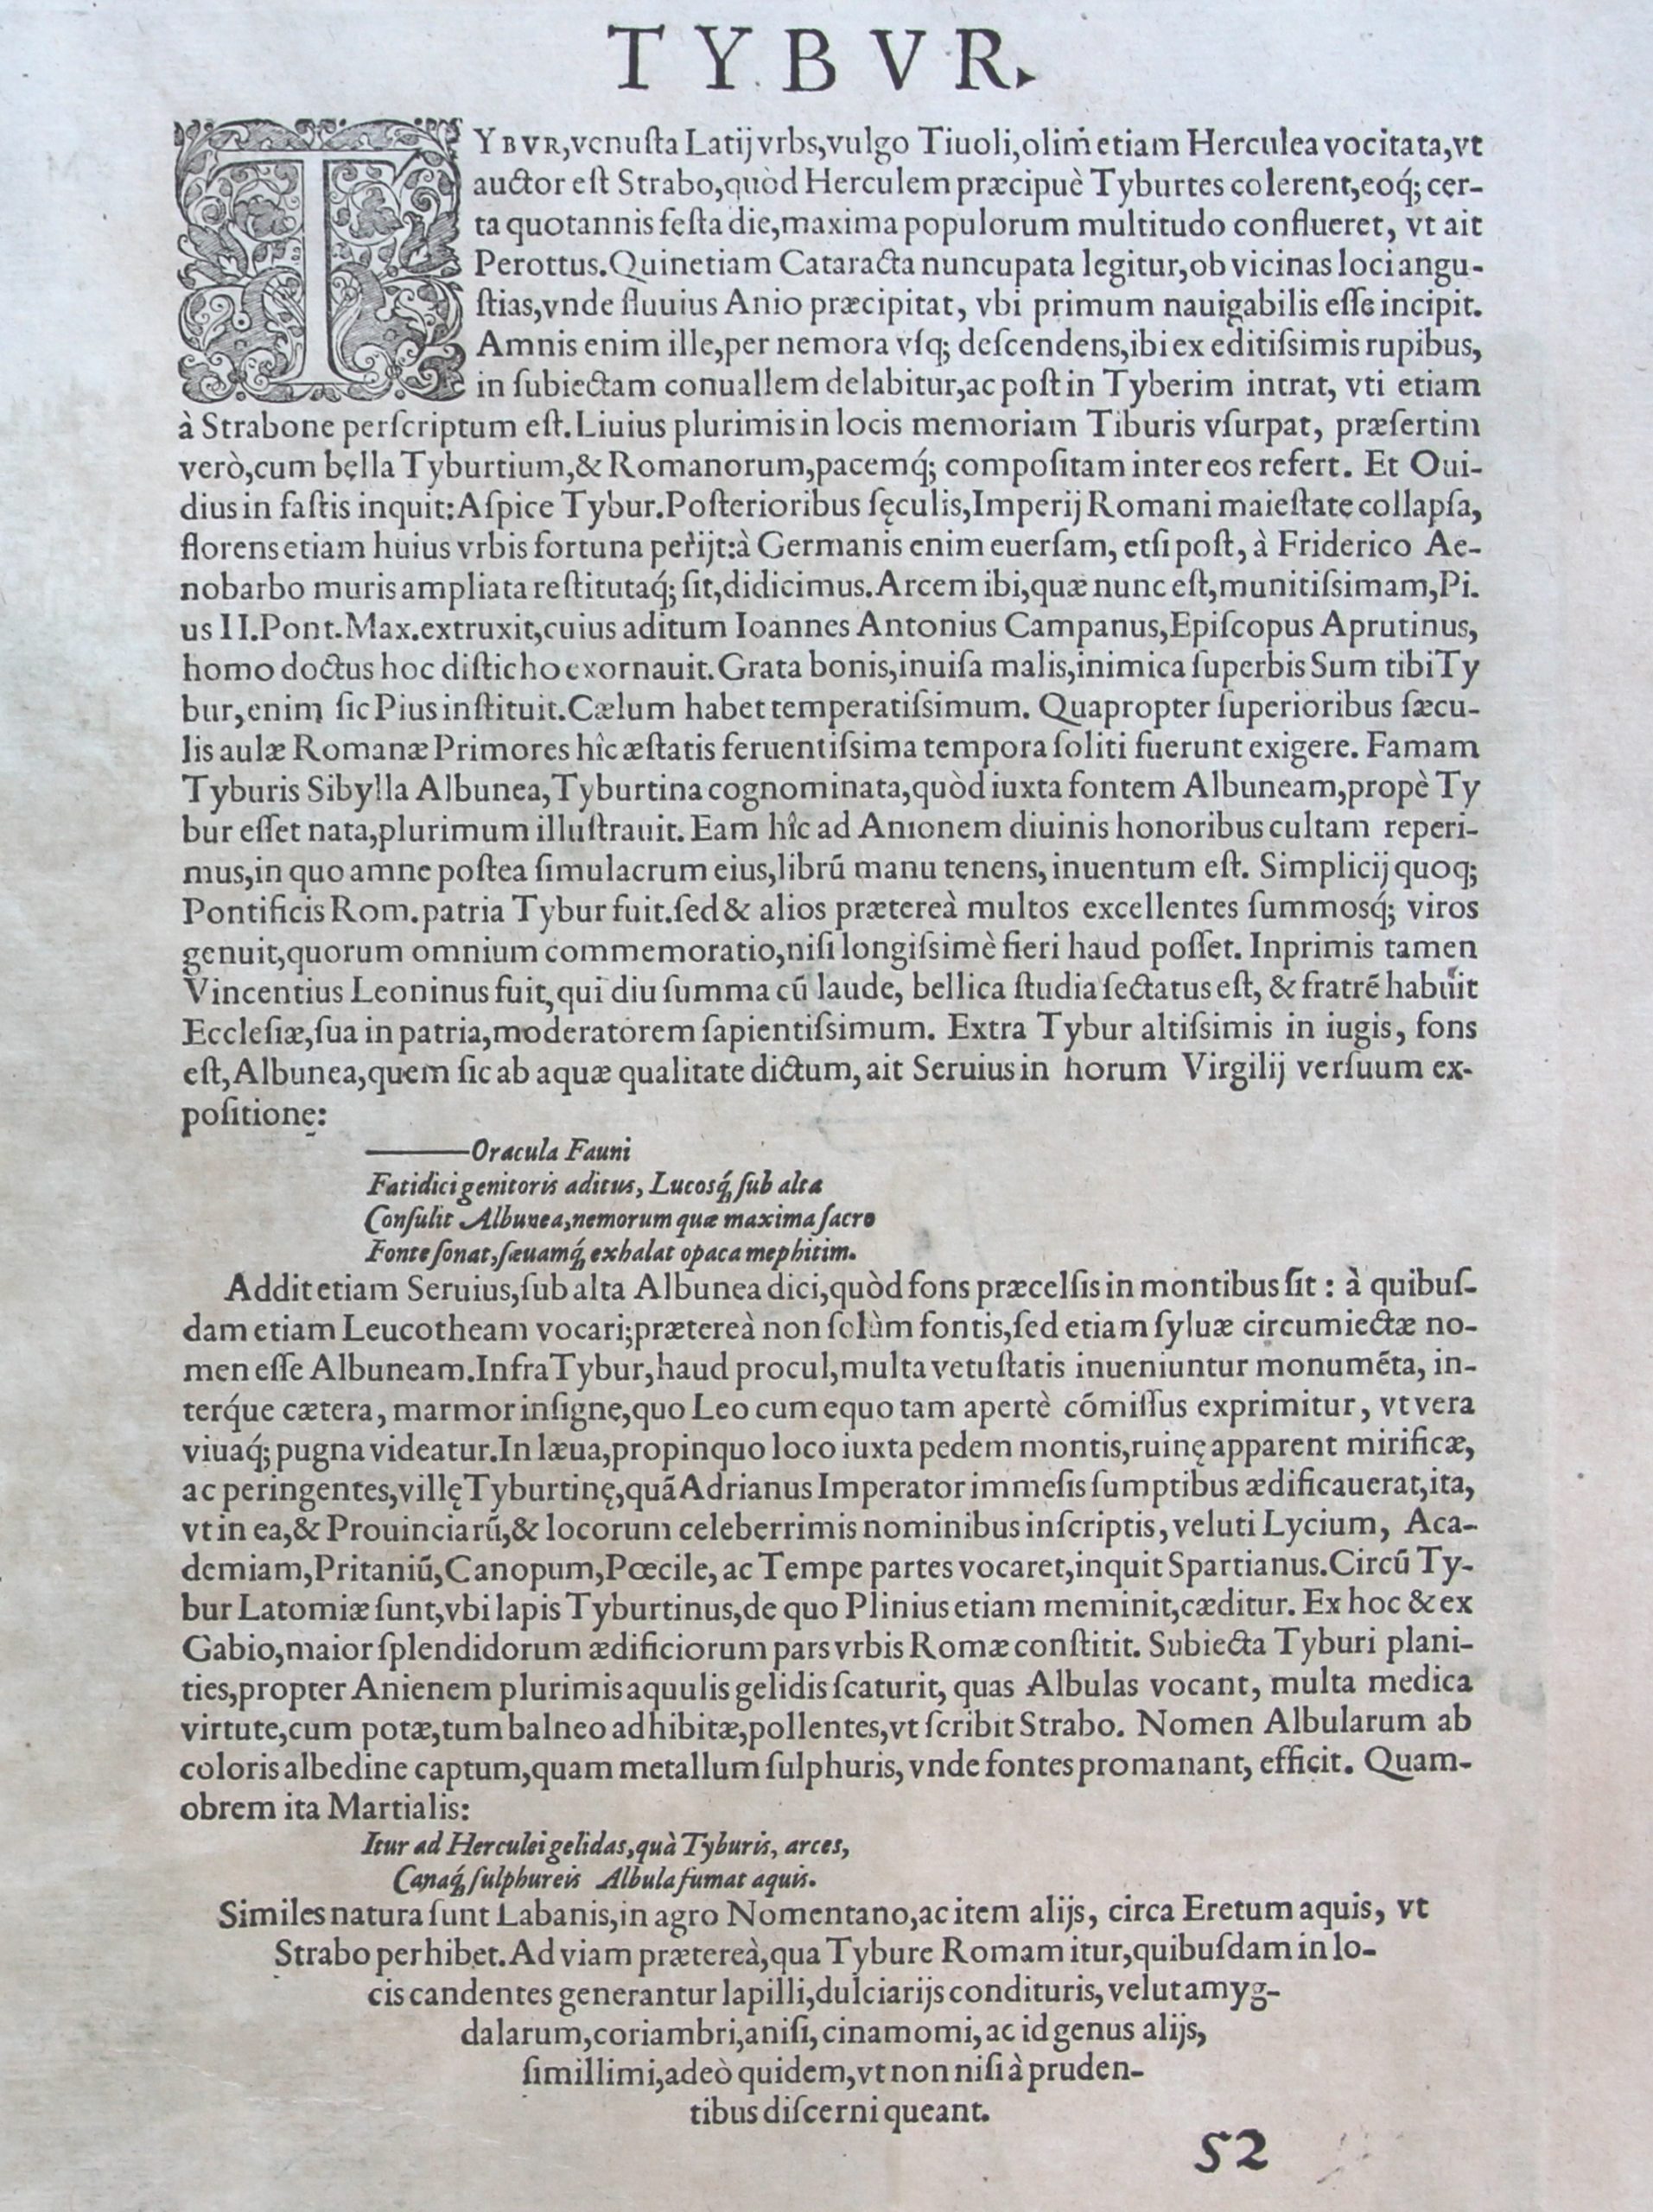 TYBVR.
TYBVR, venuſta Latij vrbs, vulgo Tiuoli, olim etiam Herculea vocitata, vt
auctor eſt Strabo, quòd Herculem præcipuè Tyburtes colerent, eoq́; cer-
ta quotannis feſta die, maxima populorum multitudo conflueret, vt ait
Perottus. Quinetiam Cataracta nuncupata legitur, ob vicinas loci angu-
ſtias, vnde fluuius Anio præcipitat, vbi primum nauigabilis eſſe incipit.
Amnis enim ille, per nemora vſq; deſcendens, ibi ex editiſsimis rupibus,
in ſubiectam conuallem delabitur, ac poſt in Tyberim intrat, vti etiam
à Strabone perſcriptum eſt. Liuius plurimis in locis memoriam Tiburis vſurpat, præſertim
verò, cum bęlla Tyburtium, & Romanorum, pacemq́; compoſitam inter eos refert. Et Oui-
dius in faſtis inquit: Aſpice Tybur. Poſterioribus ſęculis, Imperij Romani maieſtate collapſa,
florens etiam huius vrbis fortuna perijt: à Germanis enim euerſam, etſi poſt, à Friderico Ae-
nobarbo muris ampliata reſtitutaq́; ſit, didicimus. Arcem ibi, quæ nunc eſt, munitiſsimam, Pi.
us II. Pont. Max. extruxit, cuius aditum Ioannes Antonius Campanus, Epiſcopus Aprutinus,
homo doctus hoc diſticho exornauit. Grata bonis, inuiſa malis, inimica ſuperbis Sum tibi Ty
bur, enim ſic Pius inſtituit. Cælum habet temperatiſsimum. Quapropter ſuperioribus ſæcu-
lis aulæ Romanæ Primores hîc æſtatis feruentiſsima tempora ſoliti fuerunt exigere. Famam
Tyburis Sibylla Albunea, Tyburtina cognominata, quòd iuxta fontem Albuneam, propè Ty
bur eſſet nata, plurimum illuſtrauit. Eam hîc ad Anionem diuinis honoribus cultam reperi-
mus, in quo amne poſtea ſimulacrum eius, librũ manu tenens, inuentum eſt. Simplicij quoq;
Pontificis Rom. patria Tybur fuit. ſed & alios prætereà multos excellentes ſummosq́; viros
genuit, quorum omnium commemoratio, niſi longiſsimè fieri haud poſſet. Inprimis tamen
Vincentius Leoninus fuit, qui diu ſumma cũ laude, bellica ſtudia ſectatus eſt, & fratrẽ habuit
Eccleſiæ, ſua in patria, moderatorem ſapientiſsimum. Extra Tybur altiſsimis in iugis, fons
eſt, Albunea, quem ſic ab aquæ qualitate dictum, ait Seruius in horum Virgilij verſuum ex-
poſitione:
———Oracula Fauni
Fatidici genitoris aditus, Lucosq́; ſub alta
Conſulit Albunea, nemorum quæ maxima ſacro
Fonte ſonat, ſæuamq́; exhalat opaca mephitim.
Addit etiam Seruius, ſub alta Albunea dici, quòd fons præcelſis in montibus ſit: à quibuſ-
dam etiam Leucotheam vocari; prætereà non ſolùm fontis, ſed etiam ſyluæ circumiectæ no-
men eſſe Albuneam. Infra Tybur, haud procul, multa vetuſtatis inueniuntur monumẽta, in-
terq́ue cætera, marmor inſigne, quo Leo cum equo tam apertè cõmiſſus exprimitur, vt vera
viuaq́; pugna videatur. In læua, propinquo loco iuxta pedem montis, ruinę apparent mirificæ,
ac peringentes, villę Tyburtinę, quã Adrianus Imperator immẽſis ſumptibus ædificauerat, ita,
vt in ea, & Prouinciarũ, & locorum celeberrimis nominibus inſcriptis, veluti Lycium, Aca-
demiam, Pritaniũ, Canopum, Pœcile, ac Tempe partes vocaret, inquit Spartianus. Circũ Ty-
bur Latomiæ ſunt, vbi lapis Tyburtinus, de quo Plinius etiam meminit, cæditur. Ex hoc & ex
Gabio, maior ſplendidorum ædificiorum pars vrbis Romæ conſtitit. Subiecta Tyburi plani-
ties, propter Anienem plurimis aquulis gelidis ſcaturit, quas Albulas vocant, multa medica
virtute, cum potæ, tum balneo adhibitæ, pollentes, vt ſcribit Strabo. Nomen Albularum ab
coloris albedine captum, quam metallum ſulphuris, vnde fontes promanant, efficit. Quam-
obrem ita Martialis:
Itur ad Herculei gelidas, quà Tyburis, arces,
Canaq́; ſulphureis Albula fumat aquis.
Similes natura ſunt Labanis, in agro Nomentano, ac item alijs, circa Eretum aquis, vt
Strabo perhibet. Ad viam prætereà, qua Tybure Romam itur, quibuſdam in lo-
cis candentes generantur lapilli, dulciarijs condituris, velut amyg-
dalarum, coriambri, aniſi, cinamomi, ac id genus alijs,
ſimillimi, adeò quidem, vt non niſi à pruden-
tibus diſcerni queant.
52